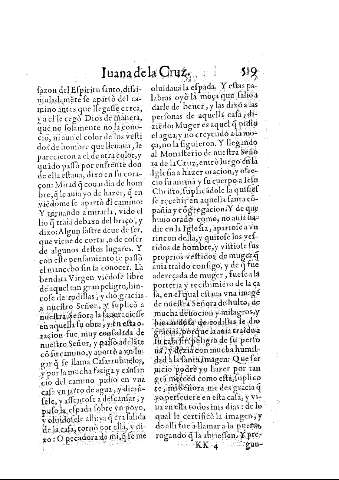 Iuana de la Cruz. 519
sazon del Espiritu santo, dissi-
muladamẽte se apartò del ca-
mino antes que llegasse cerca,
y a el le cegò Dios de manera,
que no solamente no la cono-
ciò, ni aun el color de los vesti-
dos de hombre que lleuaua, le
parecieron a el de otra color, y
assi passò por enfrente don
de ella estaua, dixo en su cora-
çon: Mirad q̃ cosa dio de hom
bre, q̃ le auia yo de hazer, q̃ en
viẽdome se apartò del camino
Y tornando a mirarla, vido el
lio q̃ traia debaxo del braço, y
dixo: Algun sastre deue de ser,
que viene de cortar, o de coser
de algunos destos lugares. Y
con este pensamiento se passò
el mancebo sin la conocer. La
bendita Virgen viẽdose libre
de aquel tan gran peligro, hin-
cose de rodillas, y dio gracias
a nuestro Señor, y suplicò a
nuestra Señora la fauoreciesse
en aquella su obra, y en esta o-
racion fue muy consolada de
nuestro Señor, y passò adelãte
cõ su camino, y aportò a vn lu-
gar q̃ se llama Casarrubuelos,
y por la mucha fatiga y cansan
cio del camino pidio en vna
casa vn jarro de agua, y dieron-
sele, y assentose a descansar, y
puso la espada sobre vn poyo,
y oluidosele alli, y q̃ era salida
de la casa, tornò por ella, y di-
zo: O pecadora de mi, q̃ se me
oluidaua la espada. Y estas pa-
labras oyò la moça que salio a
darle de beuer, y las dixo a las
personas de aquella casa, di-
ziẽdo: Muger es aquel q̃ pidiò
el agua, y no creyendo a la mo-
ça, no la siguieron. Y llegando
al Monesterio de nuestra Seño
ra de la Cruz, entrò luego en la
Iglesia a hazer oracion, y ofre-
cio su anima y su cuerpo a Iesu
Christo, suplicãdole la quisies
se recebir en aquella santa cõ-
pañia y cõgregacion. Y de que
huuo orado como, no auia na-
die en la Iglesia, apartose a vn
rincon della, y quitose los ves-
tidos de hombre, y vistiose sus
proprios vestidos de muger q̃
auia traido consigo, y de q̃ fue
adereçada de muger, fuesse a la
porteria y recibimiento de la ca
sa, en el qual estaua vna image
de nuestra Señora de bulto, de
mucha deuocion y milagros, y
hincandose de rodillas le dio
gracias, porque la auia traido a
su casa sin peligro de su perso-
na, y dezia con mucha humil-
dad a la santa imagen: Que ser
uicio podrè yo hazer por tan
grã merced como esta, suplico
te, mi señora me des gracia q̃
yo perseuere en esta casa, y vi-
ua en ella todos mis dias: de lo
qual le certificò la imagen, y
de alli fue a llamar a la puerta,
rogando q̃ la abuessen. Y pre-
KK 4 gun-